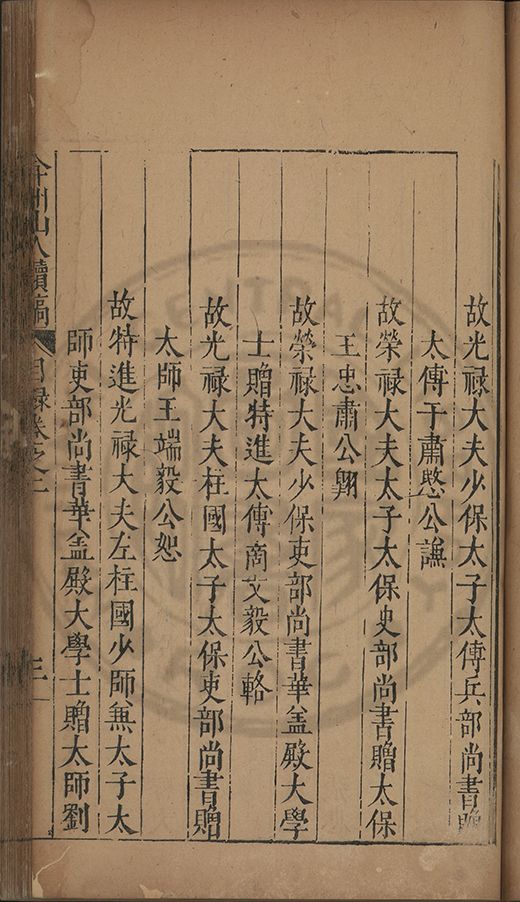 故光禄大夫少保太子太傅兵部尚書贈
太傅于肅愍公謙
故榮禄大夫太子太保吏部尚書贈太保
王忠肅公翺
故榮禄大夫少保吏部尚書華盖殿大學
士贈特進太傅商文毅公輅
故光禄大夫柱國太子太保吏部尚書贈
太師王端毅公恕
故特進光禄大夫左柱國少師兼太子太
師吏部尚書華盖殿大學士贈太師劉
弇州山人續稿 目録卷之二